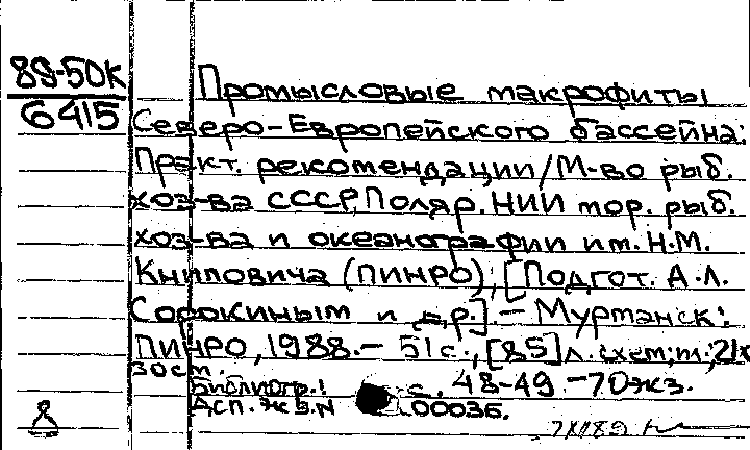 89-50К
6415
Промысловые макрофиты
Северо-Европейского бассейна:
Практ. рекомендации/М-во рыб.
хоз-ва СССР, Поляр. НИИ мор. рыб.
хоз-ва и океанографии им. Н.М.
Книповича (ПИНРО); [Подгот. А.Л.
Сорокиным и др.].- Мурманск:
ПИНРО, 1988.- 51 с., [85] л. схем; ил.; 21х
30 см.
Библиогр.: с. 48-49.-70экз.
Деп. экз. N 00036.